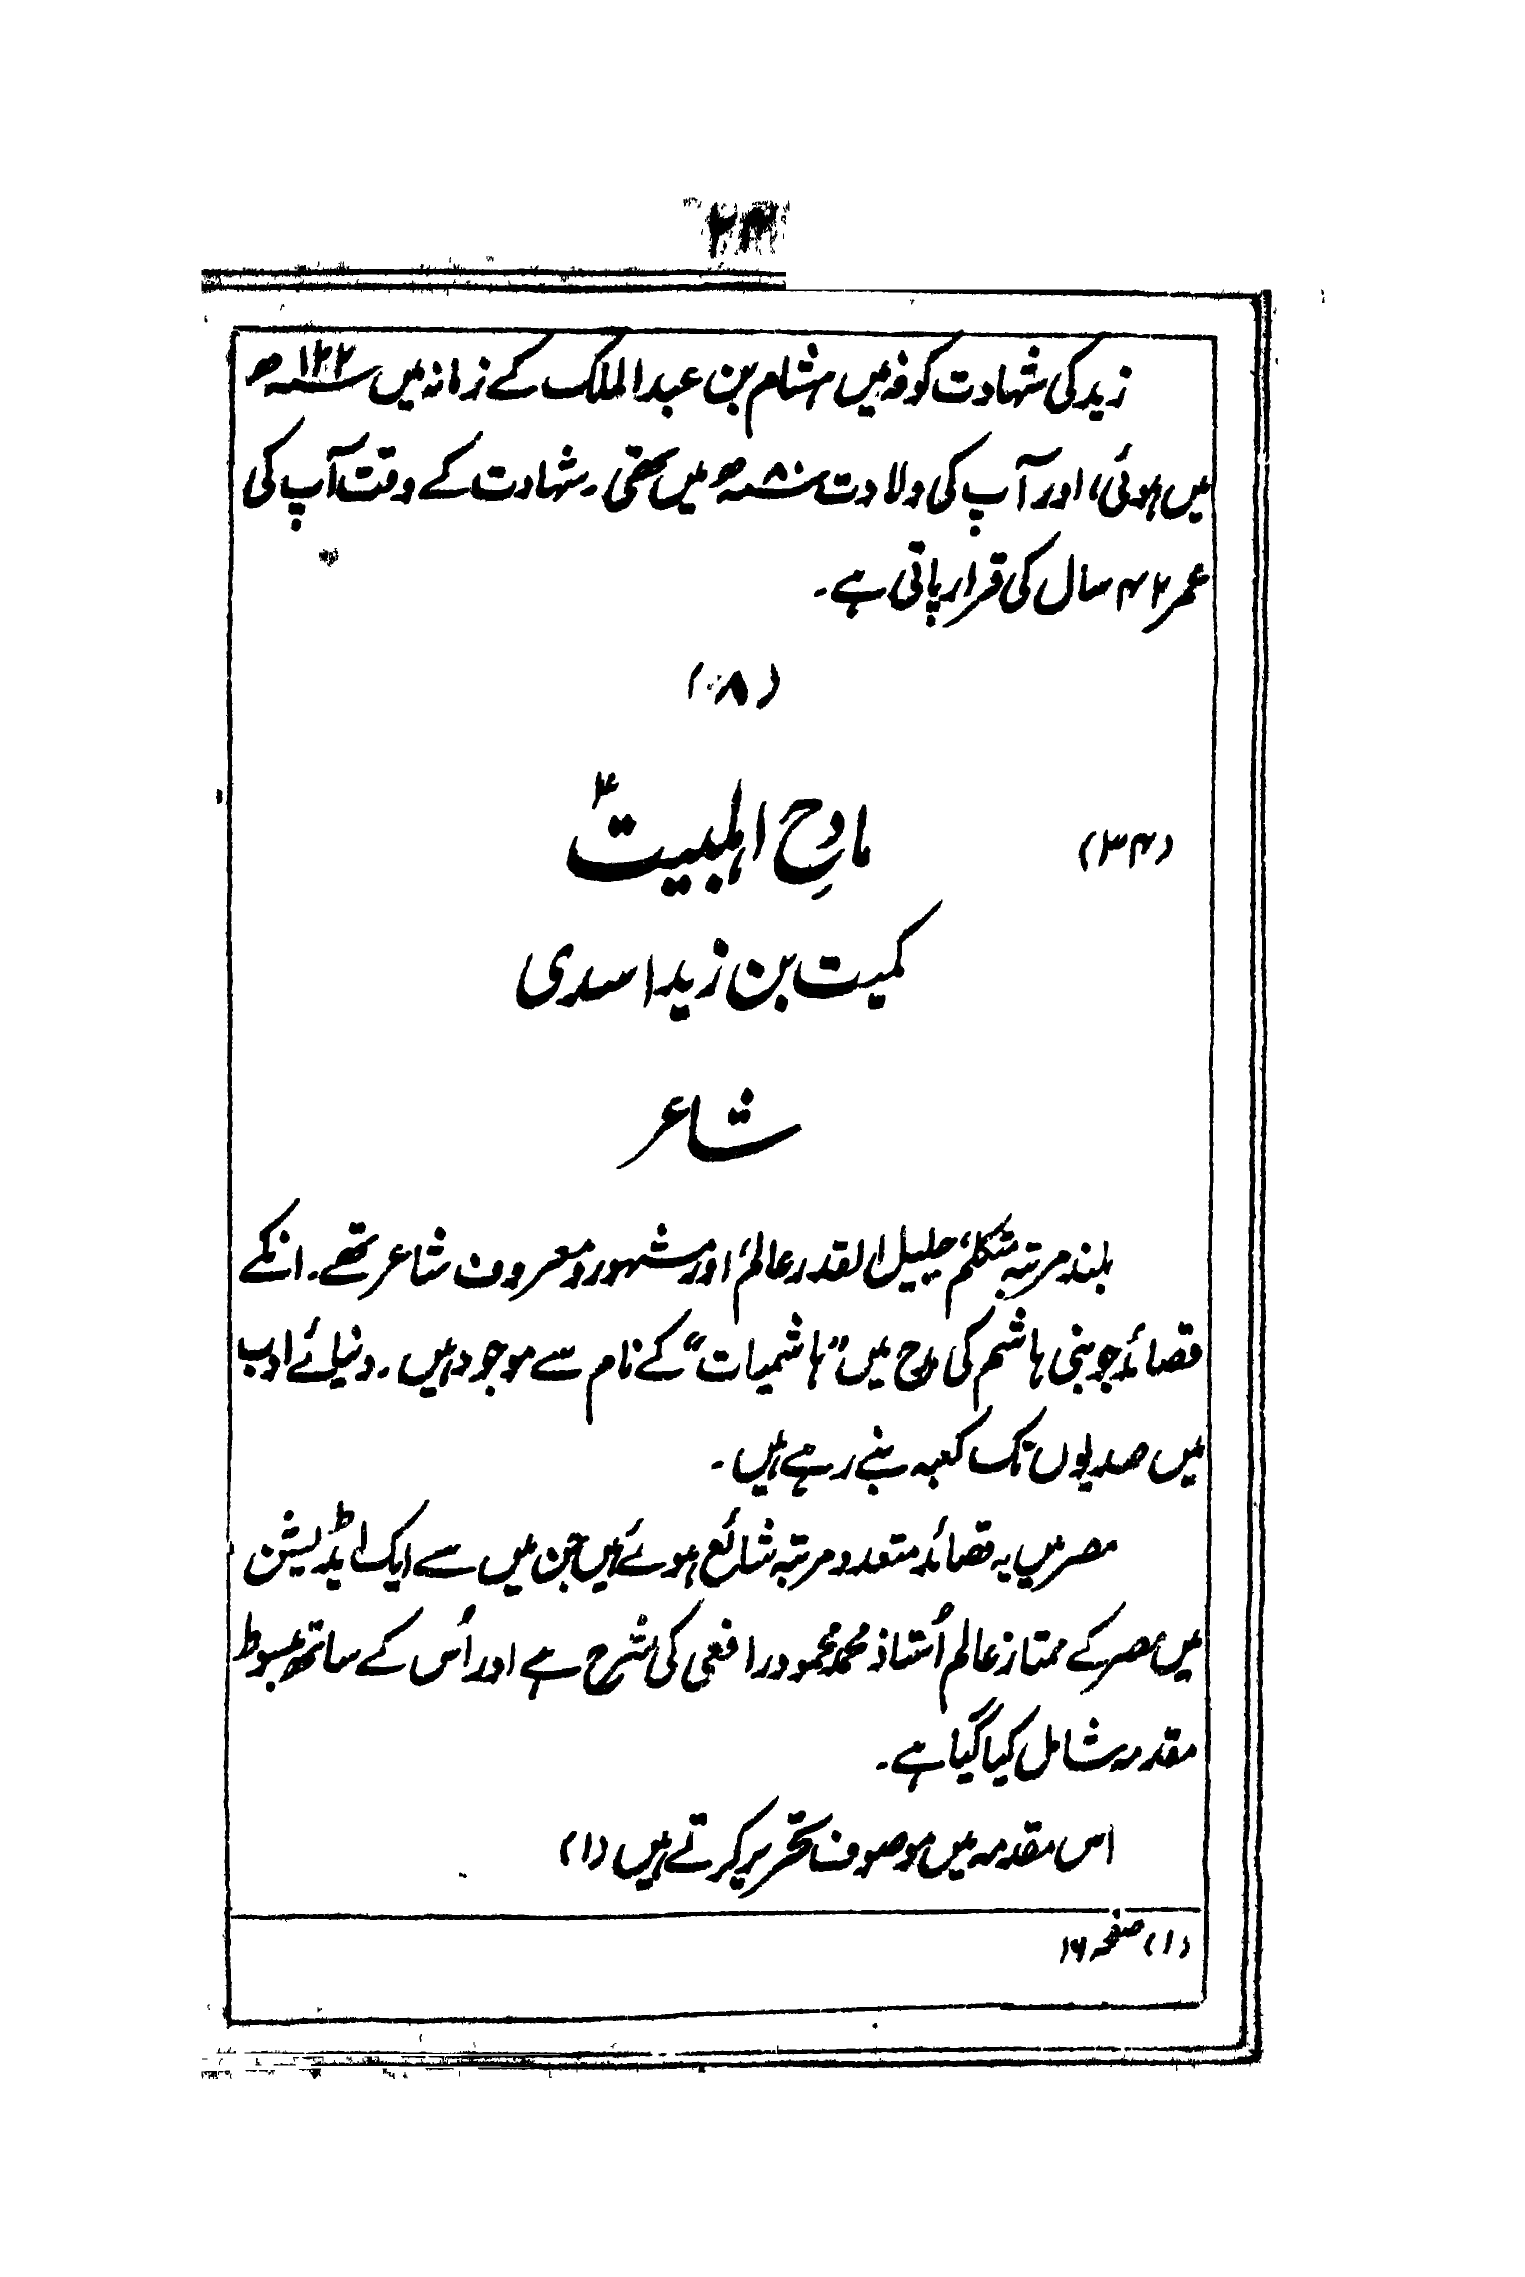 زید کی شہادت کوفہ میں ہشام بن عبدالملک کے زمانہ میں ۱۲۲ھ
میں ہوئی، اور آپ کی ولادت ۸۰ھ میں تھی۔ شہادت کے وقت آپ کی
عمر ۴۲ سال کی قرار پاتی ہے۔
(۸)
(۳۴) مادحِ اہلبیتؑ
کمیت بن زید اسدی
شاعر
بلند مرتبہ متکلم، جلیل القدر عالم، اور مشہور و معروف شاعر تھے۔ انکے
قصائد جو بنی ہاشم کی مدح میں "ہاشمیات" کے نام سے موجود ہیں۔ دنیائے ادب
میں صدیوں تک کعبہ بنے رہے ہیں۔
مصر میں یہ قصائد متعدد مرتبہ شائع ہوئے ہیں جن میں سے ایک ایڈیشن
میں مصر کے ممتاز عالم اُستاذ محمد محمود رافعی کی شرح ہے اور اُس کے ساتھ مبسوط
مقدمہ شامل کیا گیا ہے۔
اس مقدمہ میں موصوف تحریر کرتے ہیں (۱)
(۱) صفحہ ۱۶